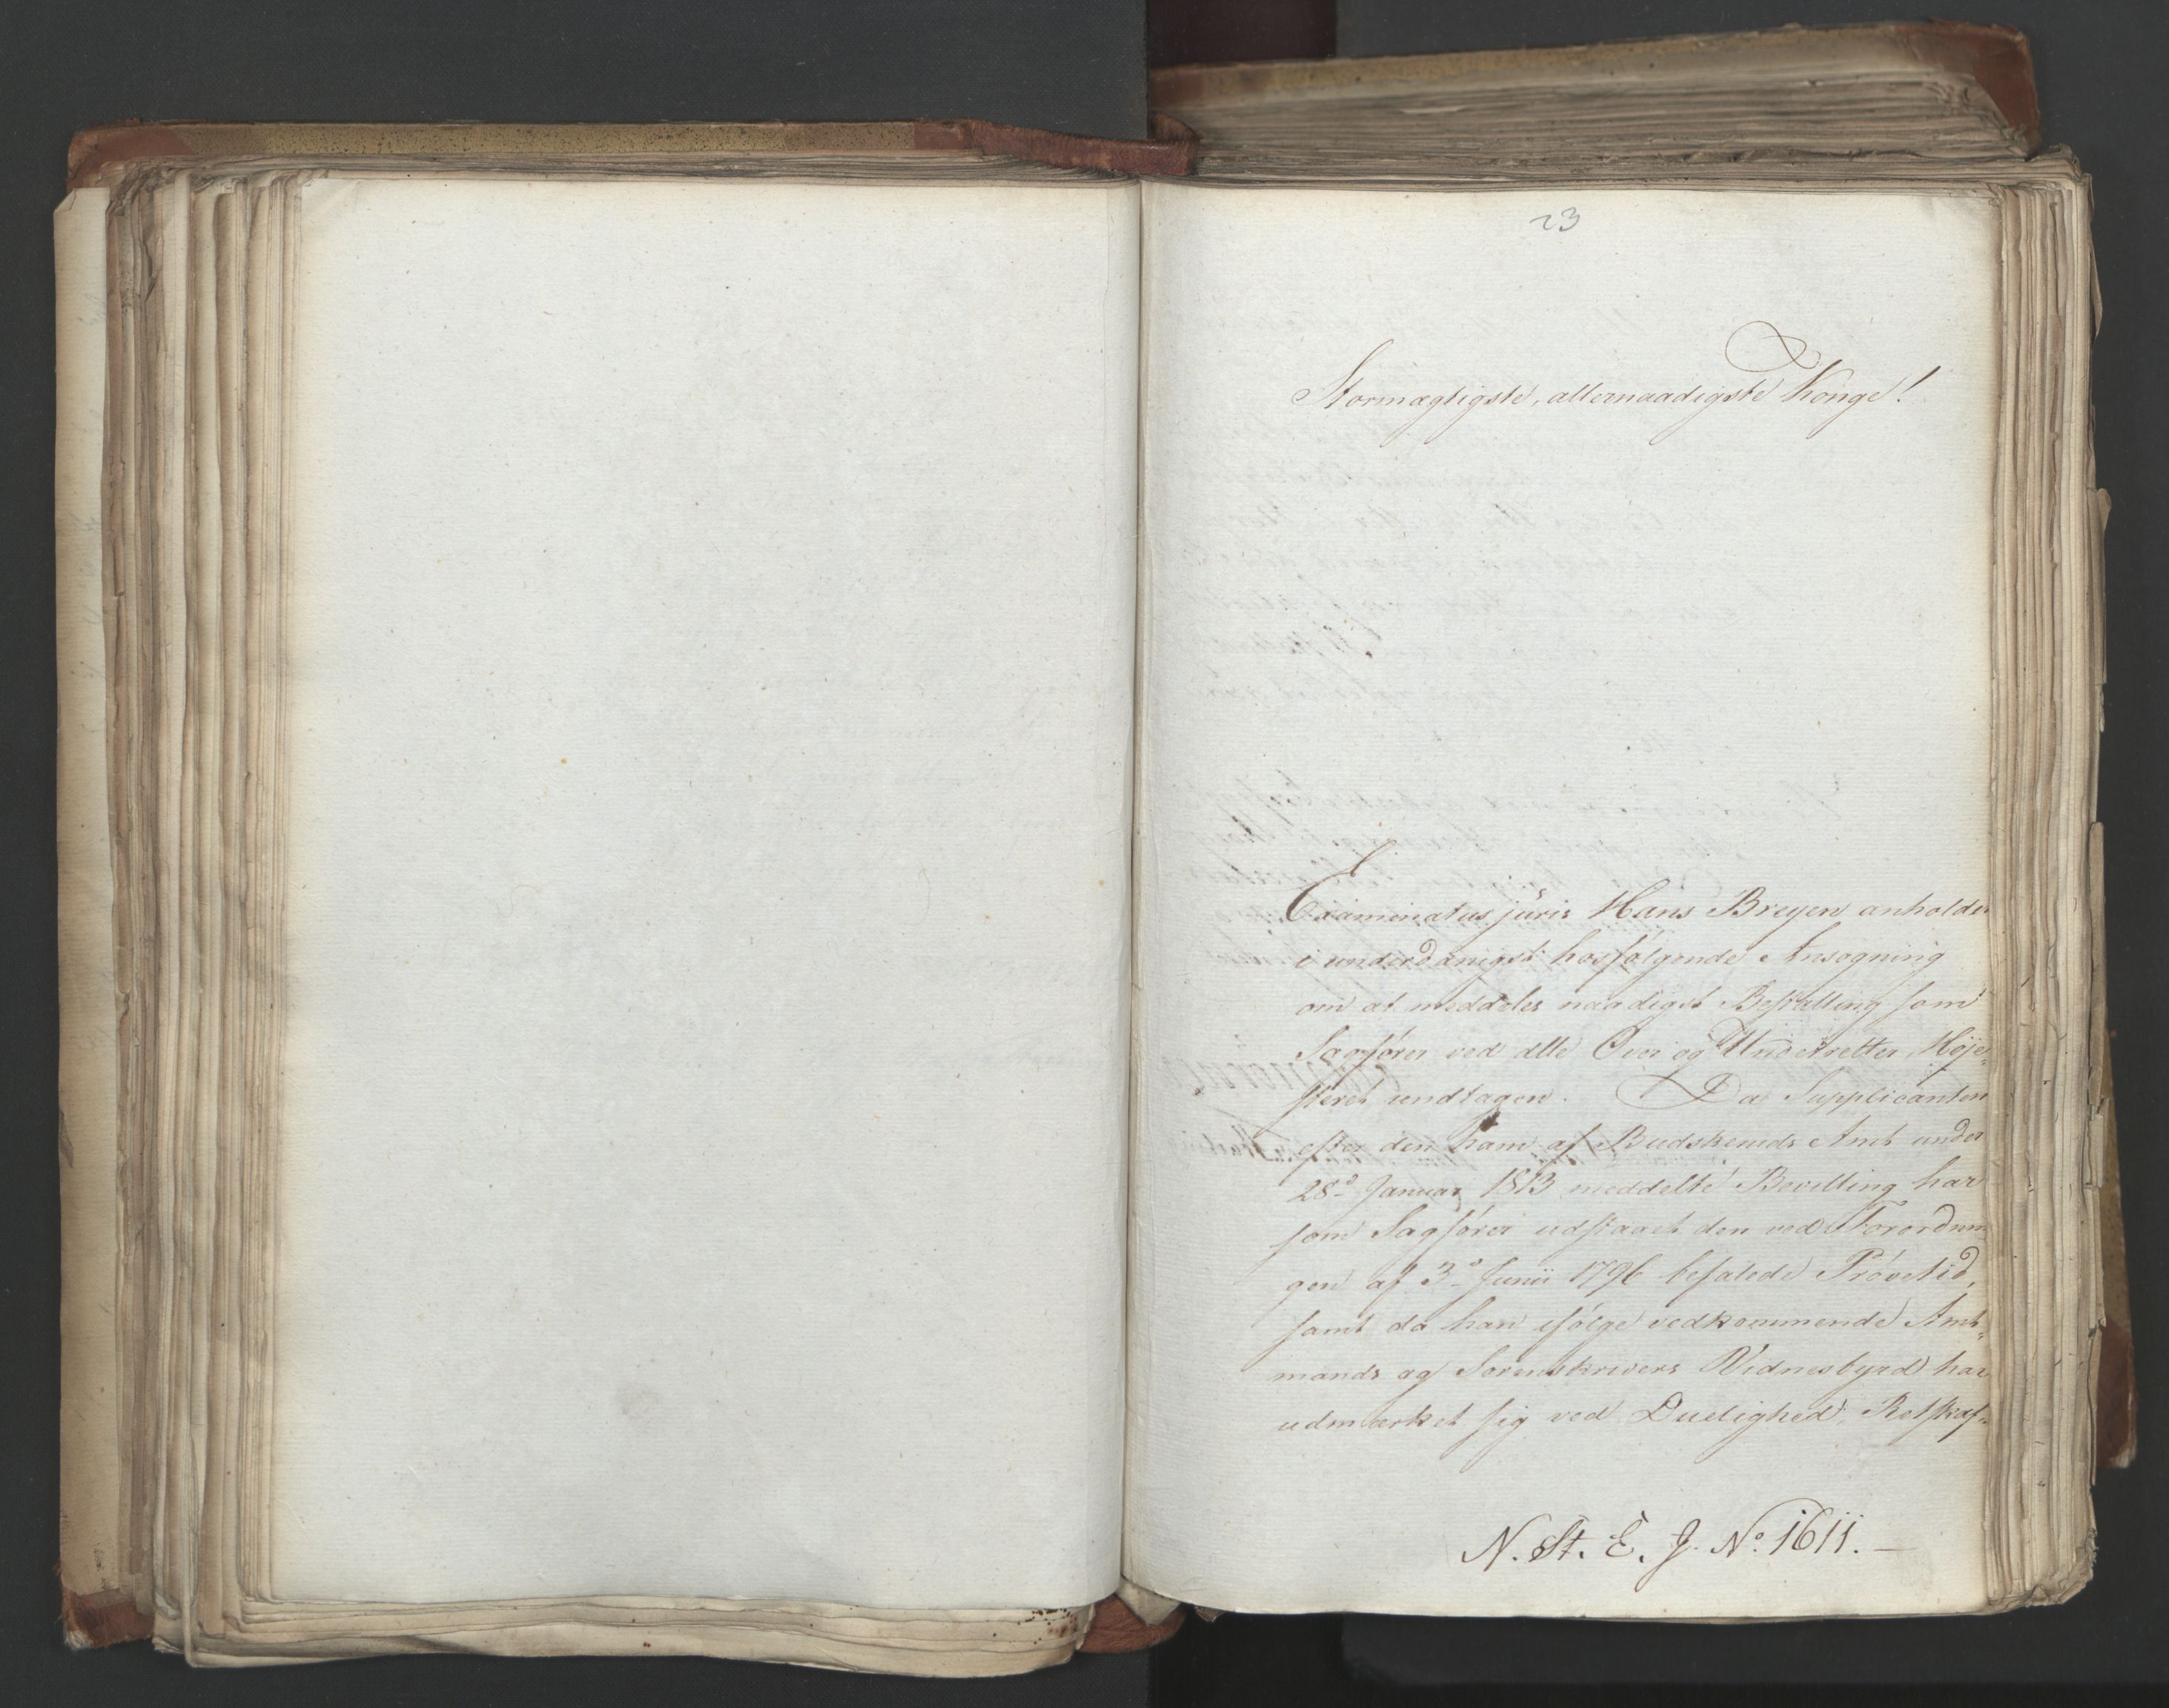 23
Stormægtigste, allernaadigste Konge!
Examinatus juris Hans Breyen anholder
i underdanigst hosfølgende Ansøgning
om at meddeles naadigst Bestalling som
Sagfører ved alle Over og Underretter, Høje-
steret undtagen. Da Supplicanten
efter den ham af Budskeruds Amt under
28º Januar 1813 meddelte Bevilling har
som Sagfører udstaaet den ved Forordnin-
gen af 3º Junii 1796 befalede Prøvetid,
samt da han ifølge vedkommende Amt-
mands og Sorenskrivers Vidnesbyrd har
udmærket sig ved Duelighed, Retskaf-
N. St. E. J. Nº 1611. —